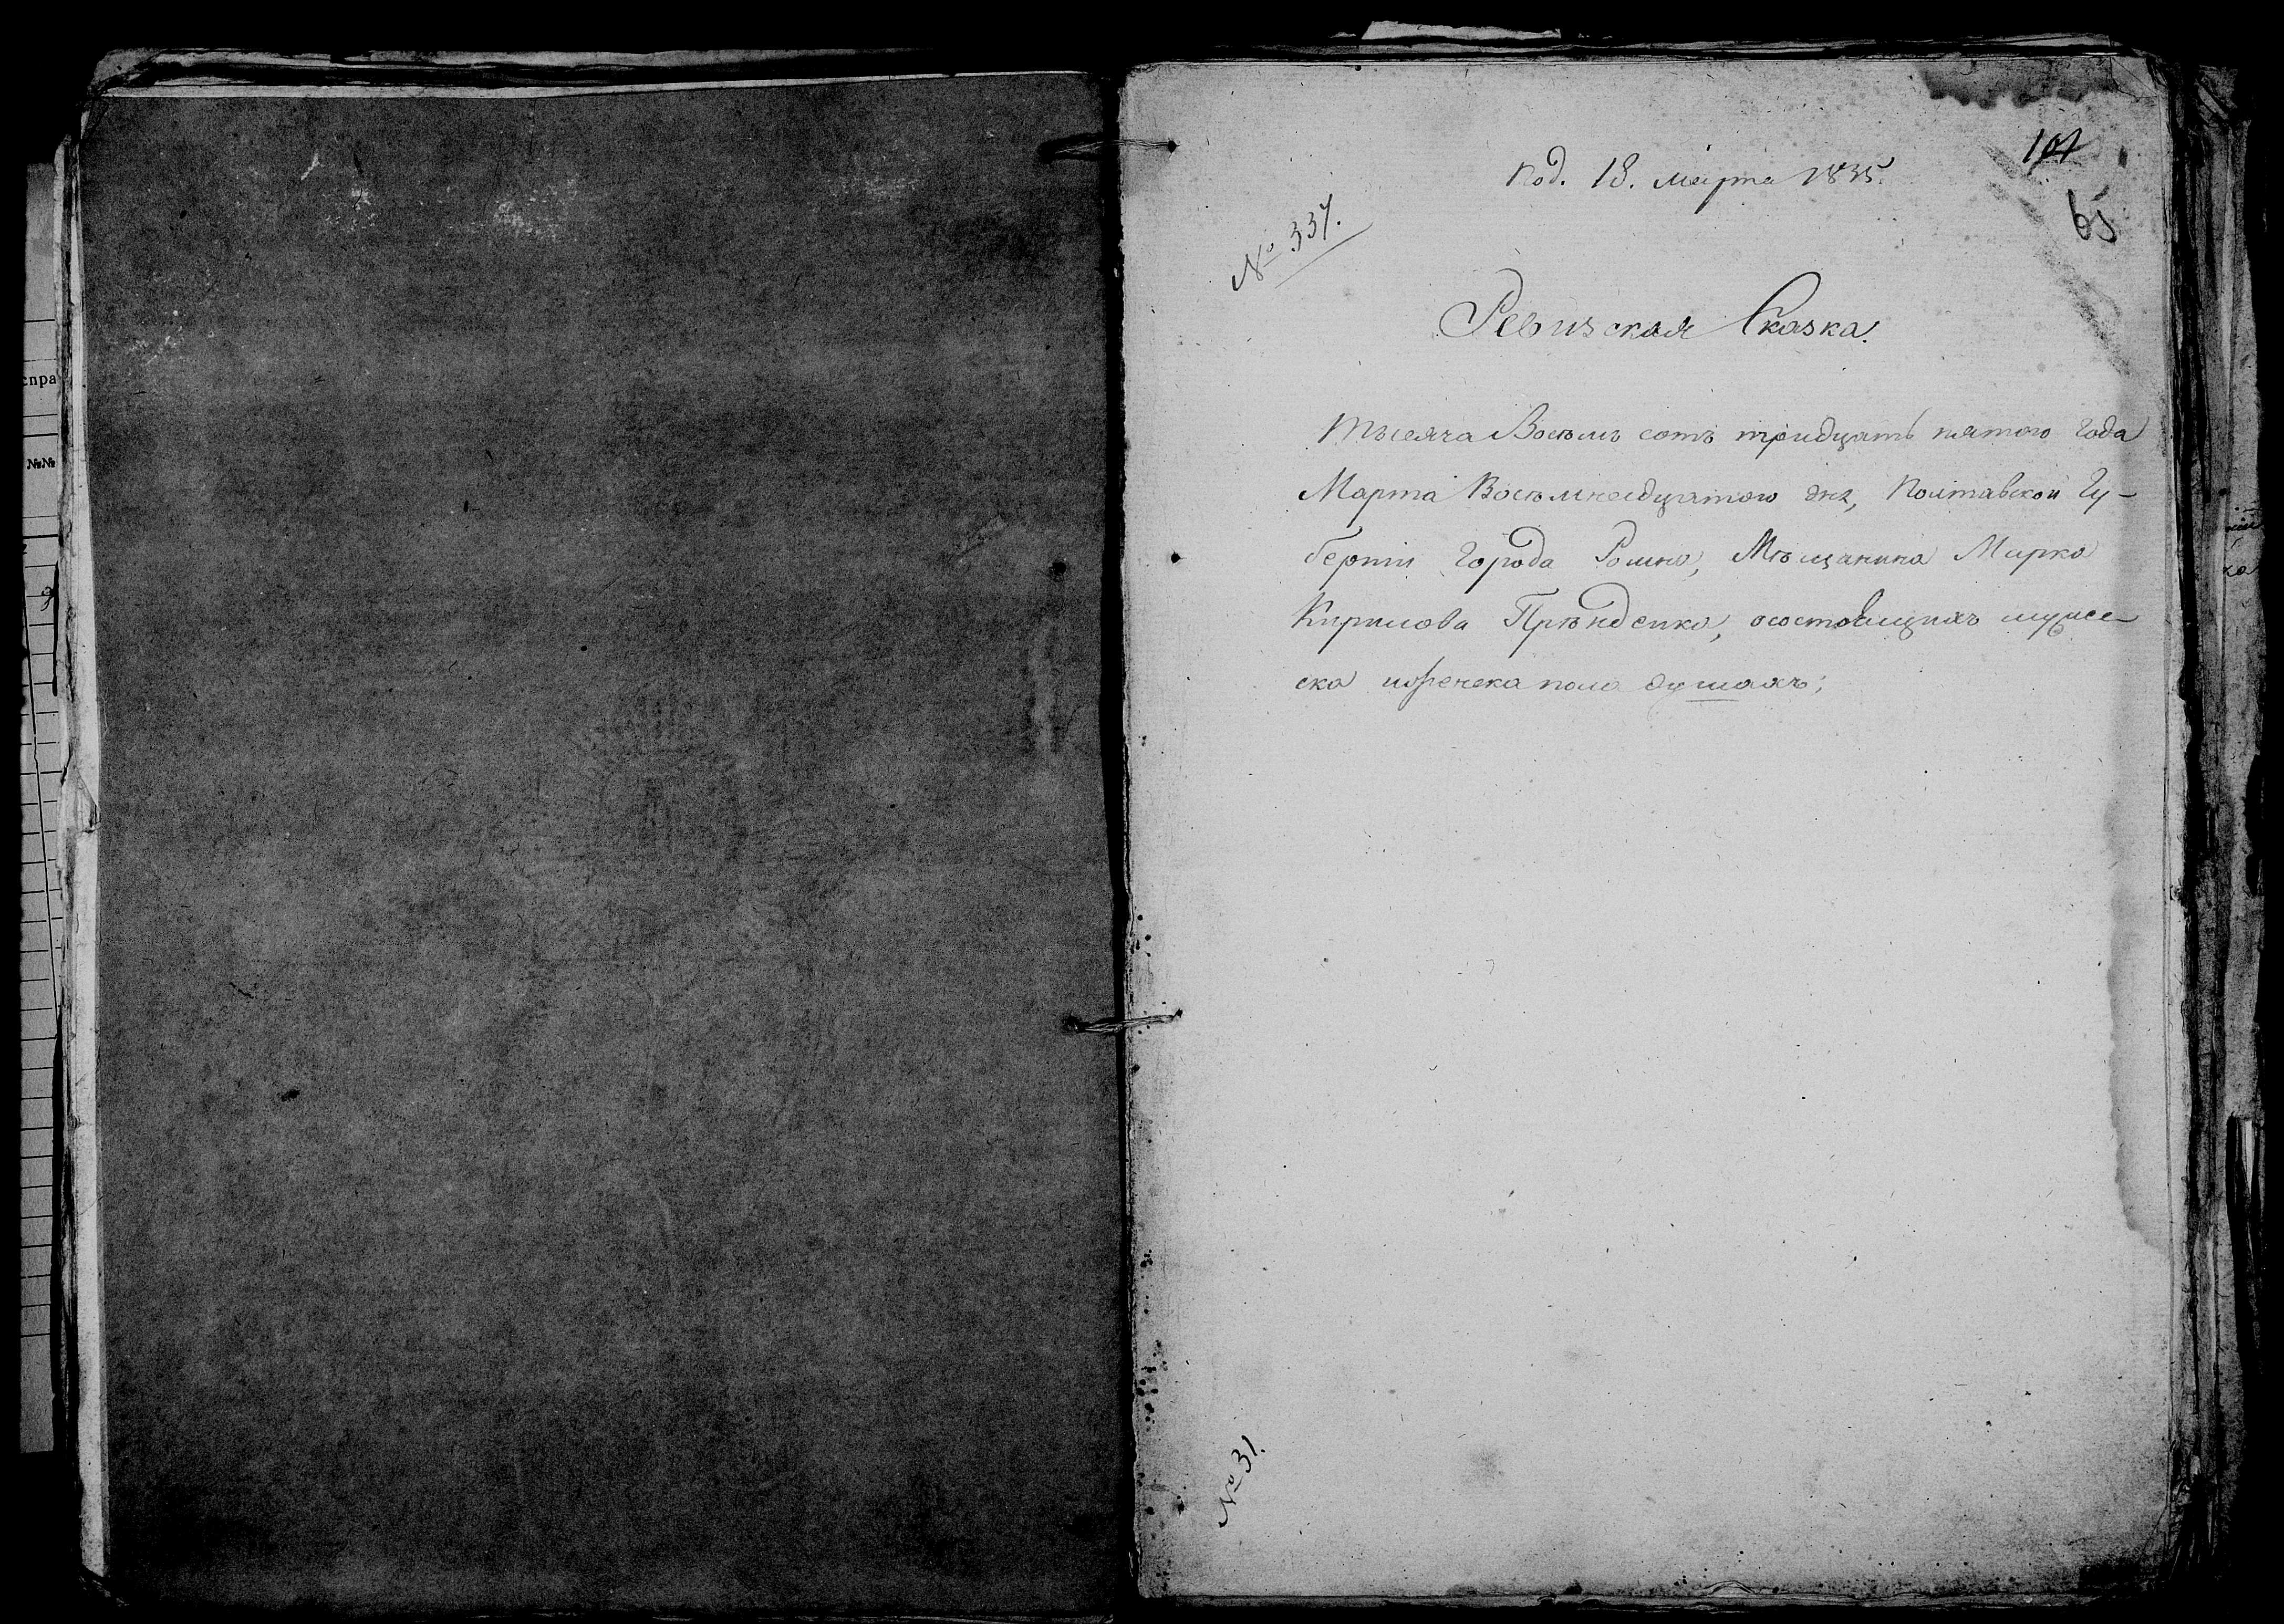 Под. 18. марта 1835.
65
№ 337.
Ревизская Сказка.
Тысяча Восемь сотъ тридцать пятого года
Марта Восемнадцатого дня, Полтавской Гу-
берніи Города Ромна, Мѣщанина Марка
Кирилова, осостоящихъ мужес-
ска иженска пола душахъ;
№ 31.
спра
№№